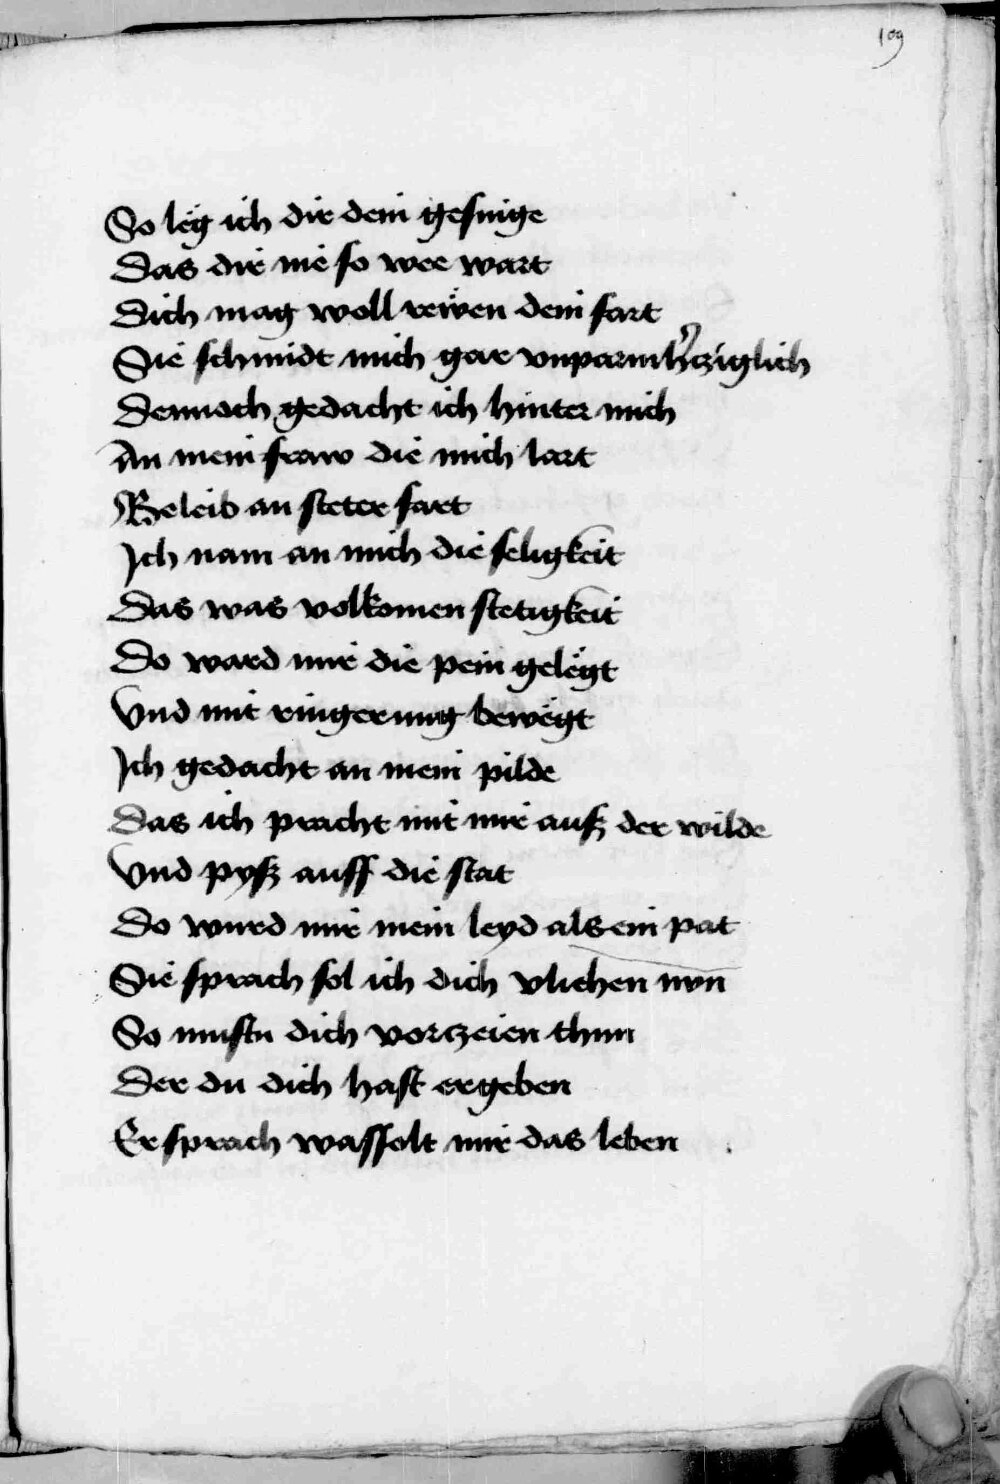 109
So leg ich dir dein gesinge
Das dir nie so wee wart
Dich mag woll rewen dein fart
Sie schmidt mich gar vnparmhercziglich
Dennoch gedacht ich hinter mich
An mein fraw die mich lart
Beleib an steter fart
Ich nam an mich die seligkeit
Das was volkomen stetigkeit
Do ward mir die pein gelegt
Vnd mit ringerung bewegt
Ich gedacht an mein pilde
Das ich pracht mit mir ausz der wilde
Vnd pysz auff die stat
Do wurd mir mein leyd als ein pat
Sie sprach sol ich dich vliehen nvn
So mustu dich vorczeien thun
Der du dich hast ergeben
Er sprach was solt mir das leben